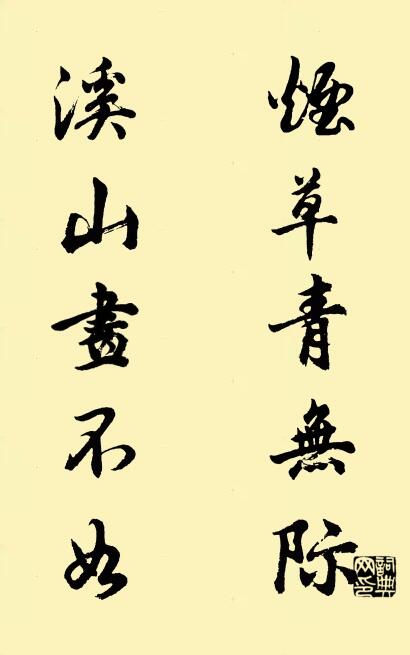 煙草青無际
溪山畫不如
詞典网印